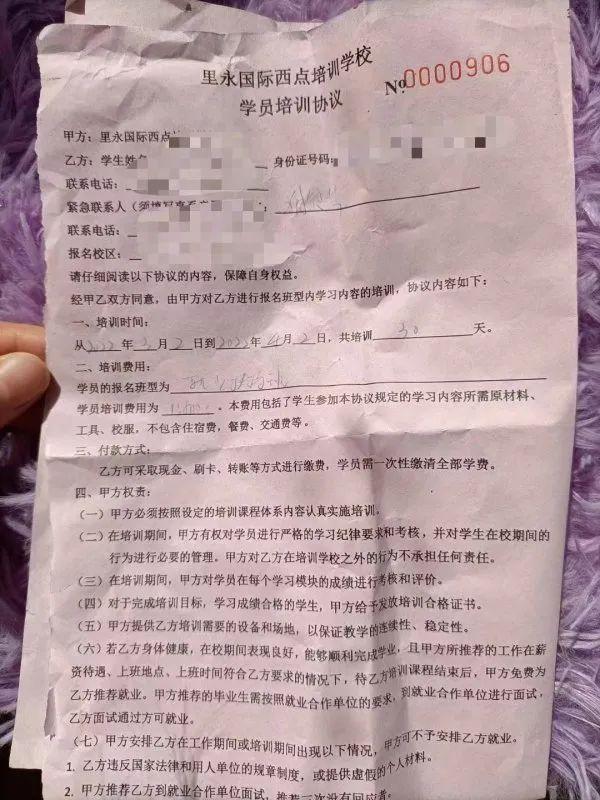 里永国际西点培训学校
№0000906
学员培训协议
甲方：里永国际西点
乙方：学生姓名 身份证号码：
联系电话：
紧急联系人（须填写直系
联系电话：
报名校区：
请仔细阅读以下协议的内容，保障自身权益。
经甲乙双方同意，由甲方对乙方进行报名班型内学习内容的培训，协议内容如下：
一、培训时间：
从2022年3月2日到2022年4月2日，共培训 30 天。
二、培训费用：
学员的报名班型为
学员培训费用为 。本费用包括了学生参加本协议规定的学习内容所需原材料、
工具、校服，不包含住宿费，餐费、交通费等。
三、付款方式：
乙方可采取现金、刷卡、转账等方式进行缴费，学员需一次性缴清全部学费。
四、甲方权责：
（一）甲方必须按照设定的培训课程体系内容认真实施培训。
（二）在培训期间，甲方有权对学员进行严格的学习纪律要求和考核，并对学生在校期间的
行为进行必要的管理。甲方对乙方在培训学校之外的行为不承担任何责任。
（三）在培训期间，甲方对学员在每个学习模块的成绩进行考核和评价。
（四）对于完成培训目标，学习成绩合格的学生，甲方给予发放培训合格证书。
（五）甲方提供乙方培训需要的设备和场地，以保证教学的连续性、稳定性。
（六）若乙方身体健康，在校期间表现良好，能够顺利完成学业，且甲方所推荐的工作在薪
资待遇、上班地点、上班时间符合乙方要求的情况下，待乙方培训课程结束后，甲方免费为
乙方推荐就业。甲方推荐的毕业生需按照就业合作单位的要求，到就业合作单位进行面试，
乙方面试通过方可就业。
（七）甲方安排乙方在工作期间或培训期间出现以下情况，甲方可不予安排乙方就业。
1. 乙方违反国家法律和用人单位的规章制度，或提供虚假的个人材料。
2. 甲方推荐乙方到就业单位面试，推荐三次没有回应者。